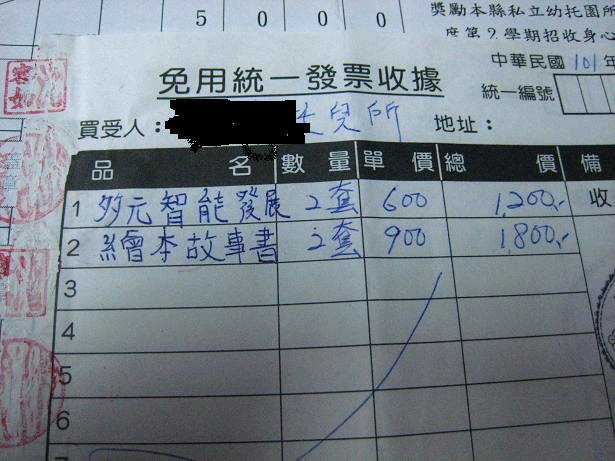 5 0 0 0
獎勵本縣私立幼托園所
度第2學期招收身心
中華民國101年
免用統一發票收據
統一編號
買受人: 兒所 地址:
品名 數量 單價 總價 備
1 多元智能發展 2套 600 1,200.- 收
2 繪本故事書 2套 900 1,800.-
3
4
5
6
7